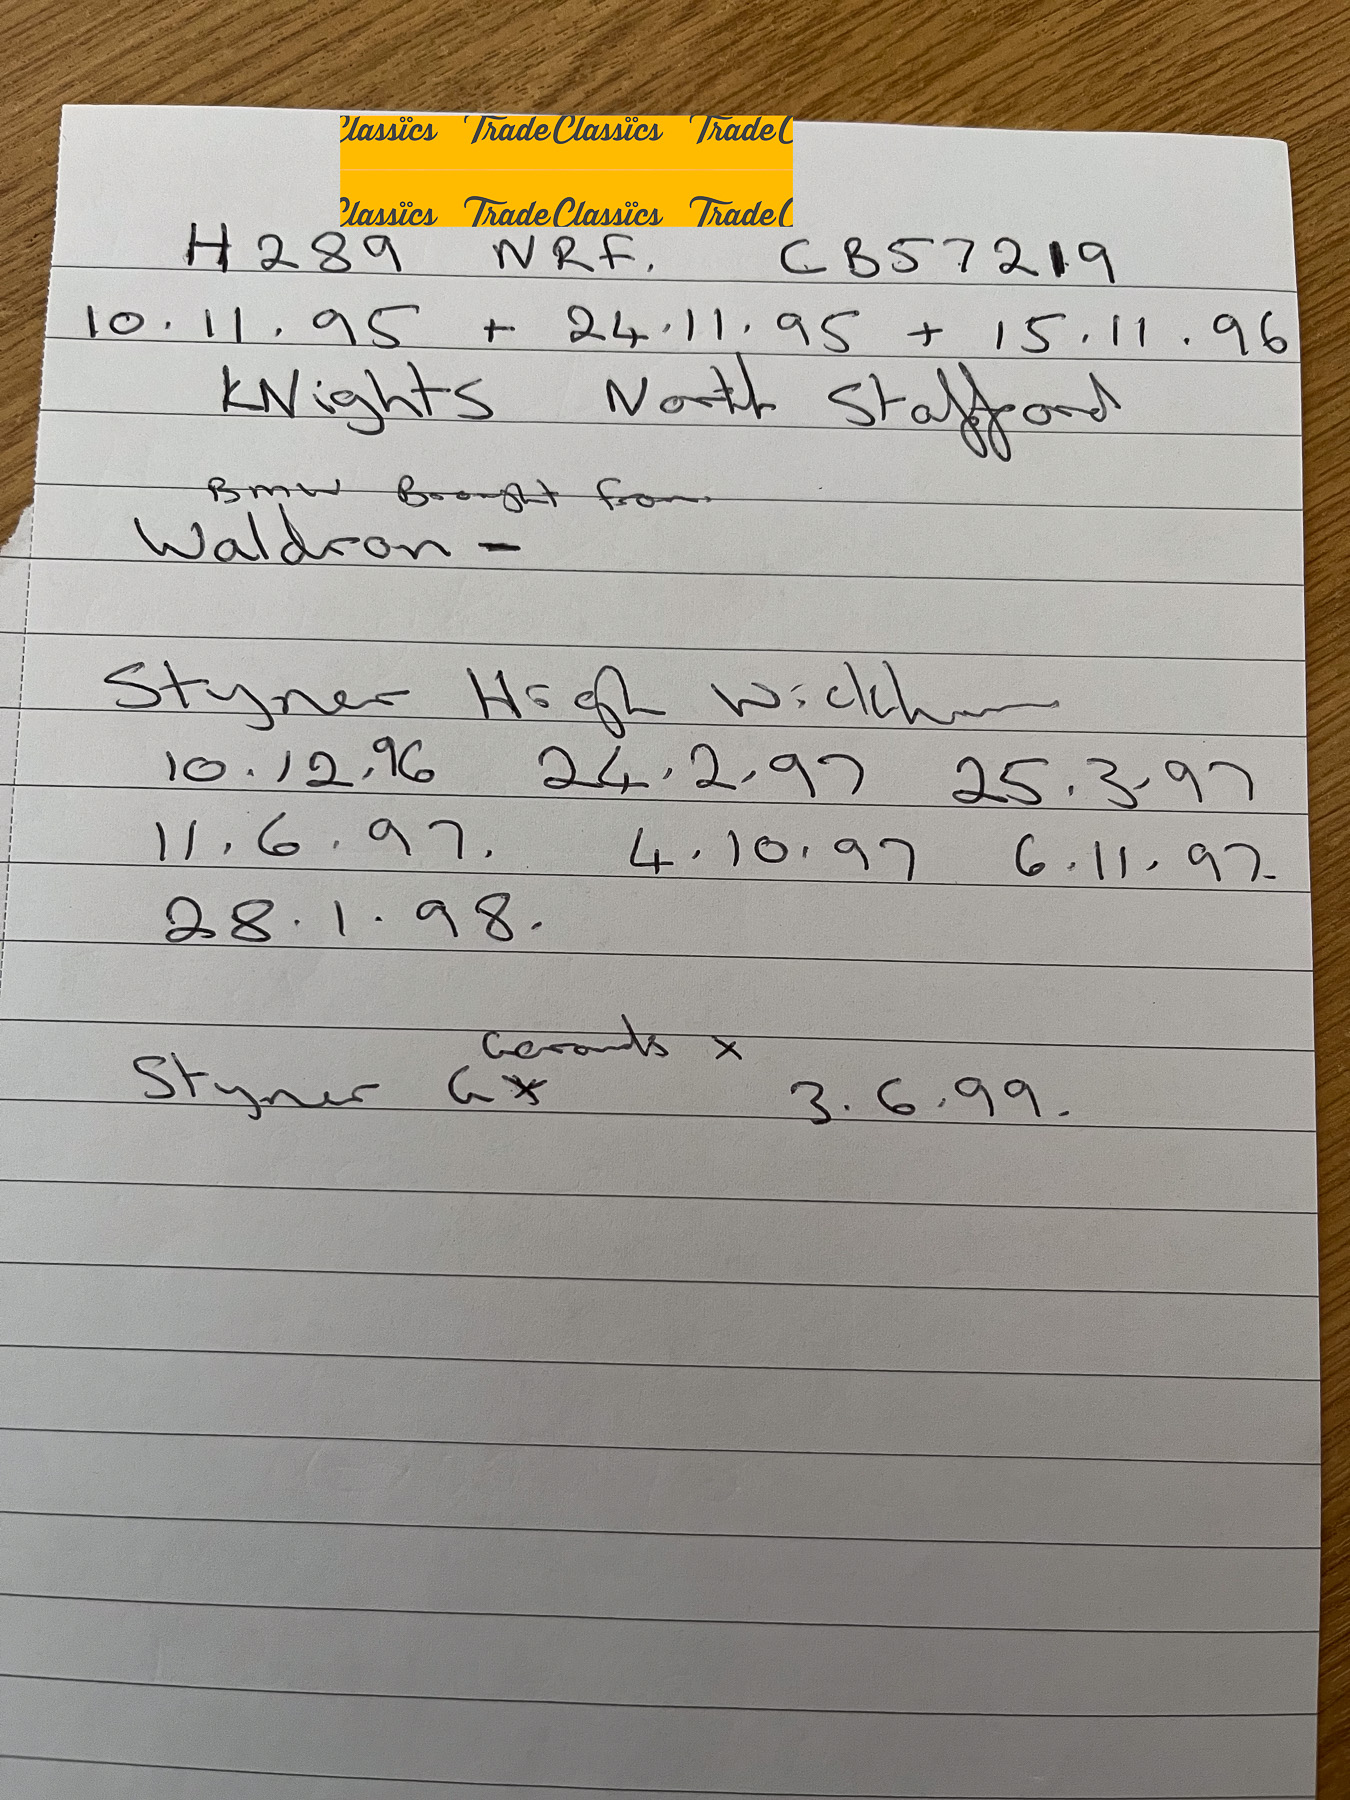 Classics Trade Classics Trade C
Classics Trade Classics Trade C
H289 NRF. CB57219
10.11.95 + 24.11.95 + 15.11.96
KNights North Stafford
BMW Brought from
Waldron -
Styner High Wickham
10.12.96 24.2.97 25.3.97
11.6.97. 4.10.97 6.11.97
28.1.98.
x
Styner Gx 3.6.99.